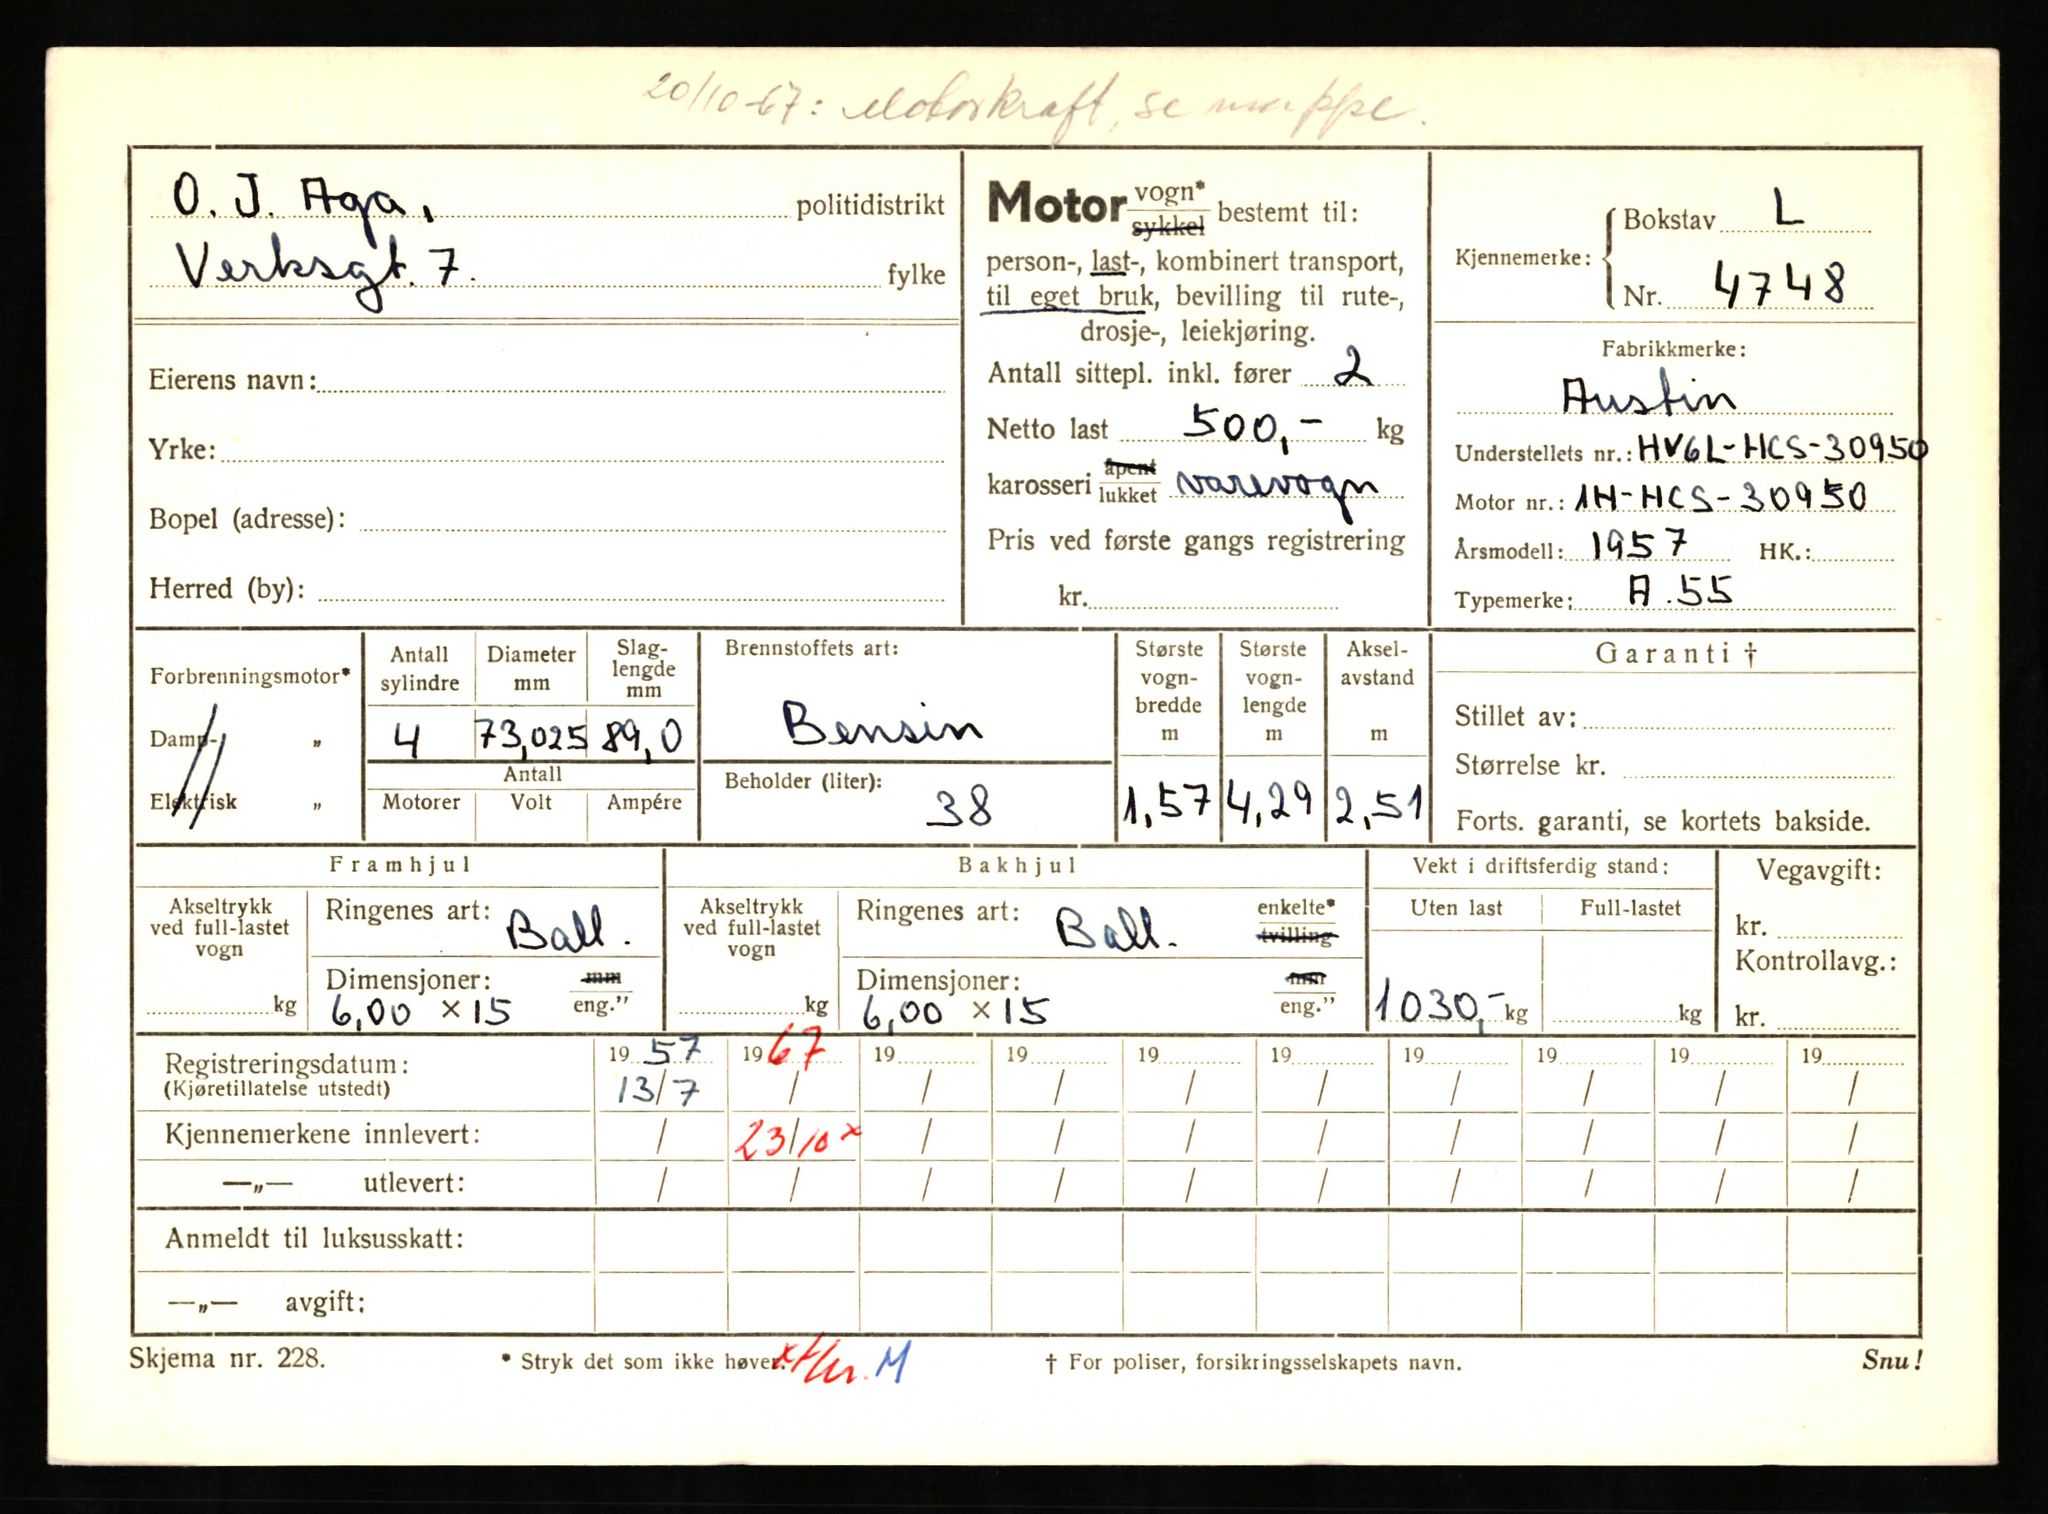 20/10-67: Motorkraft, se mappe.
O. J. Aga, politidistrikt
Verksgt. 7. fylke
Eierens navn:
Yrke:
Bopel (adresse):
Herred (by):
Motor vogn* sykkel bestemt til:
person-, last-, kombinert transport,
til eget bruk, bevilling til rute-,
drosje-, leiekjøring.
Antall sittepl. inkl. fører 2
Netto last 500,- kg
karosseri åpent lukket varevogn
Pris ved første gangs registrering
kr.
Kjennemerke: Bokstav L
Nr. 4748
Fabrikkmerke:
Austin
Understellets nr.: HV6L-HCS-30950
Motor nr.: 1H-HCS-30950
Årsmodell: 1957 HK.:
Typemerke: A.55
Forbrenningsmotor*
Damp- „
Elektrisk „
Antall sylindre Diameter mm Slag-lengde mm
4 73,025 89,0
Antall
Motorer Volt Ampére
Brennstoffets art:
Bensin
Beholder (liter):
38
Største vogn-bredde m
1,57
Største vogn-lengde m
4,29
Aksel-avstand m
2,51
Garanti †
Stillet av:
Størrelse kr.
Forts. garanti, se kortets bakside.
Framhjul
Akseltrykk ved full-lastet vogn
kg
Ringenes art: Ball.
Dimensjoner: mm
6,00 × 15 eng.”
Bakhjul
Akseltrykk ved full-lastet vogn
kg
Ringenes art: Ball. enkelte* tvilling
Dimensjoner: mm
6,00 × 15 eng.”
Vekt i driftsferdig stand:
Uten last Full-lastet
1030,- kg kg
Vegavgift:
kr.
Kontrollavg.:
kr.
Registreringsdatum: 19 57 19 67 19 19 19 19 19 19 19 19
(Kjøretillatelse utstedt) 13/7 / / / / / / / / /
Kjennemerkene innlevert: / 23/10 x / / / / / / / /
—„— utlevert: / / / / / / / / / /
Anmeldt til luksusskatt:
—„— avgift:
Skjema nr. 228. * Stryk det som ikke høver. M † For poliser, forsikringsselskapets navn. Snu!